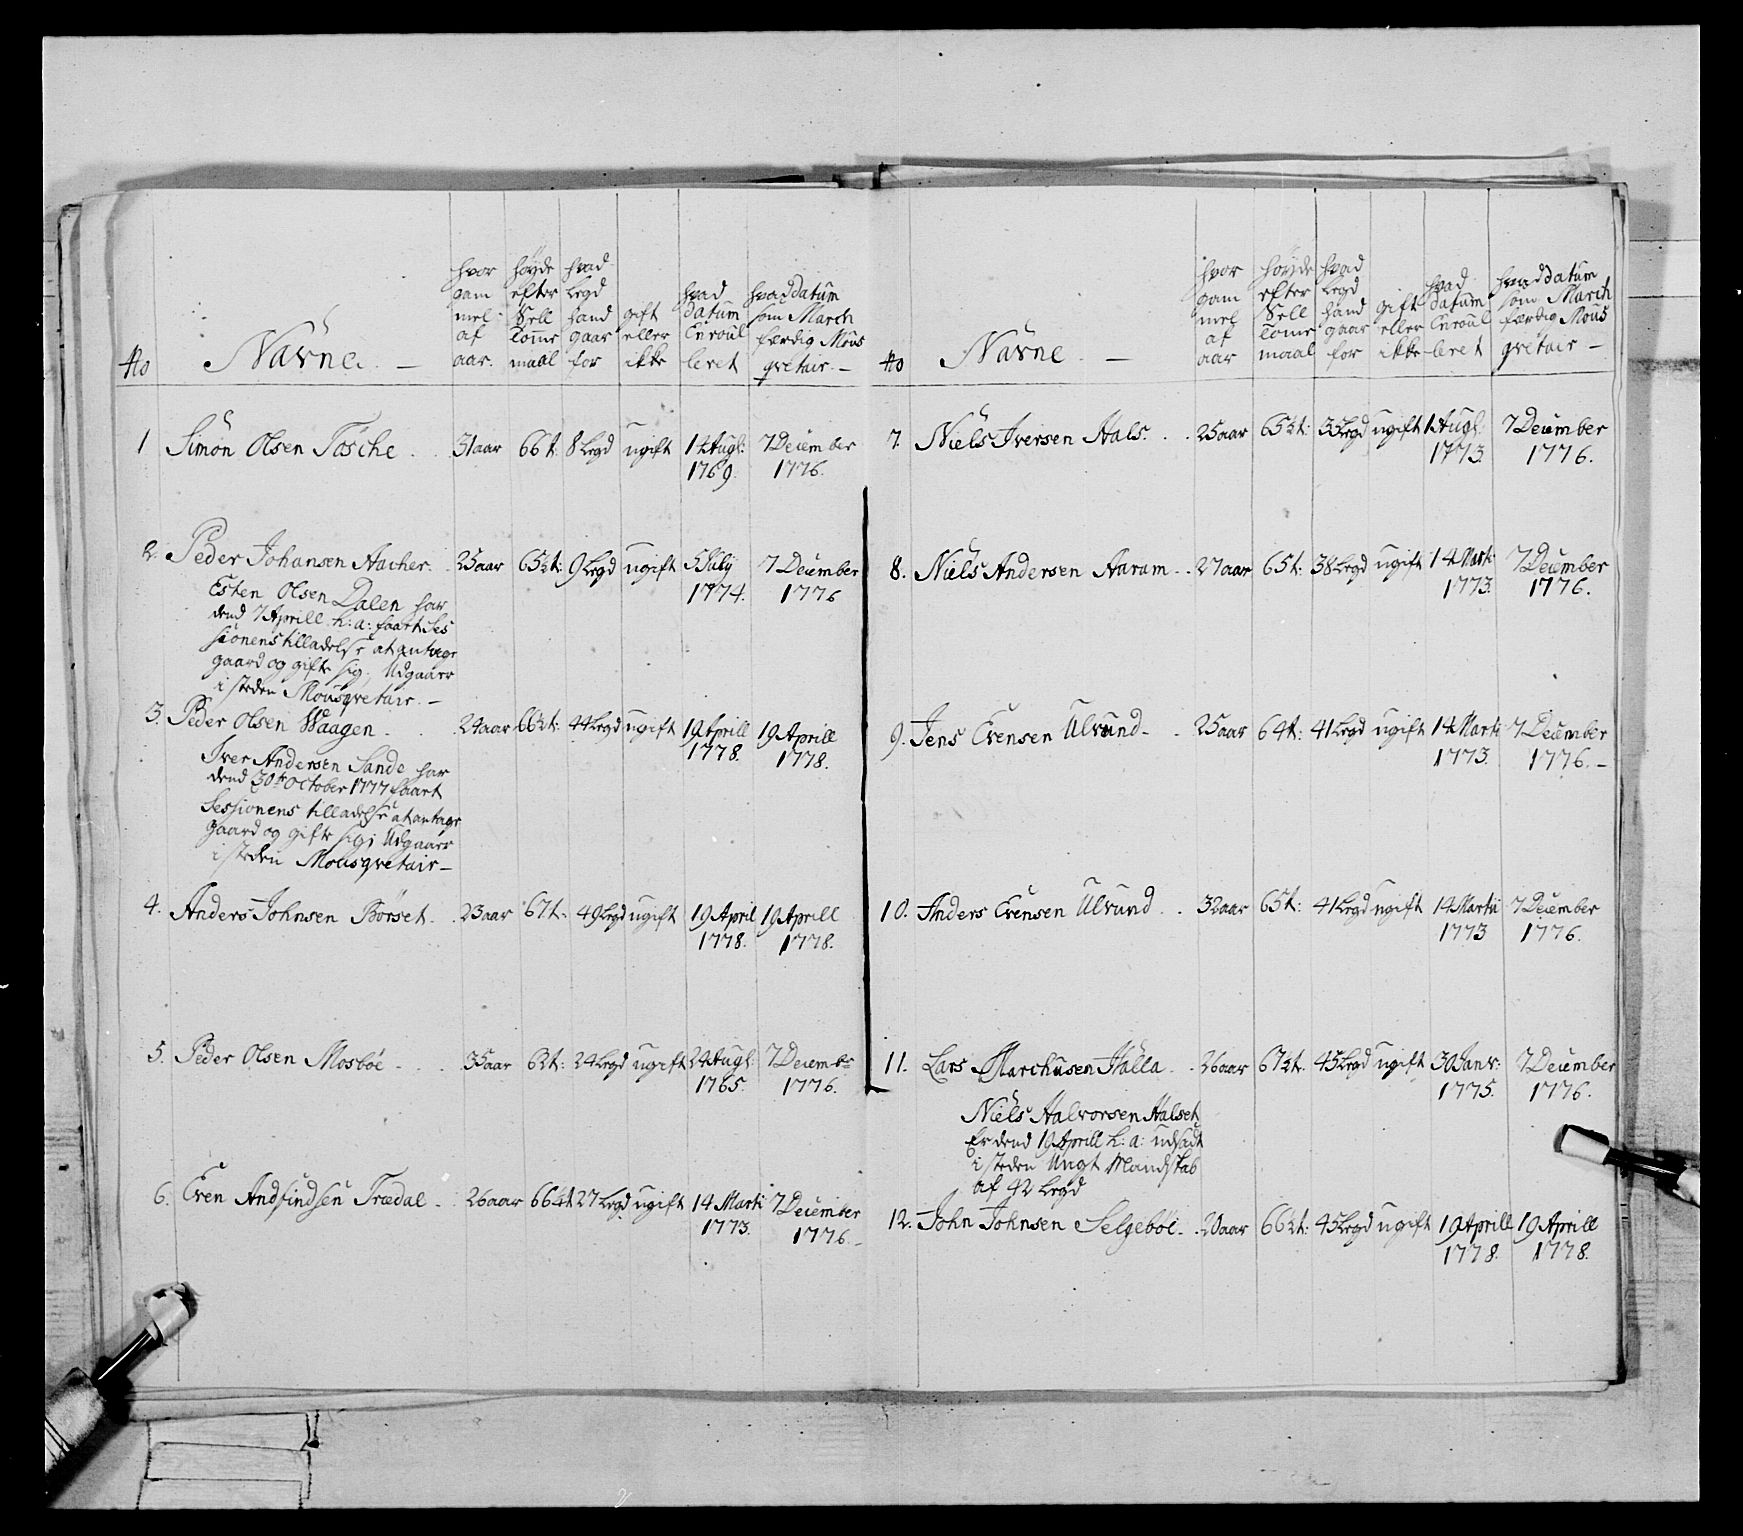 No Navne. — hvor gam mel af aar. höyde efter Sell Tomme maal hvad Legd hand gaar for gift eller ikke hvad datum Enroul leret hvad datum som March færdig Mous qvetair. —
1 Simon Olsen Tösche . . 31 aar 66 t. 8 Legd ugift 14 Aug: 1769. 7 December 1776.
2. Peder Johansen Aacher. . 25 aar 65½ t: 9 Legd ugift 5 July 1774. 7 December 1776
Esten Olsen Dalen har
dend 7 Aprill h: a: faart Ses
sionens tilladelse at antage
gaard og gifte sig, Udgaaer
i steden Mousqvetair. —
3. Peder Olsen Waagen . . 24 aar 66½ t: 44 Legd ugift 19 Aprill 1778. 19 Aprill 1778.
Iver Andersen Sande har
dend 30te October 1777 faart
Sessionens tilladelse at antage
gaard og gifte sig; Udgaaer
i steden Mousqvetair —
4. Anders Johnsen Börset . . 23 aar 67 t. 49 Legd ugift 19 April 1778. 19 Aprill 1778.
5. Peder Olsen Mosböe . . . 35 aar 62 t: 24 Legd ugift 24 Aug: 1765. 7 Decembr 1776.
6. Even Andfindsen Trædal . . 26 aar 66¼ t 27 Legd ugift 14 Marti 1773. 7 December 1776 —
No Navne. — hvor gam mel af aar höyde efter Sell Tomme maal hvad Legd hand gaar for gift eller ikke hvad datum Enroul leret hvad datum som March færdig Mous qvetair —
7. Niels Iversen Hals . . 25 aar 65½ t: 33 Legd ugift 1 Aug: 1773. 7 December 1776.
8. Niels Andersen Aaram . . 27 aar 65 t: 38 Legd ugift 14 Marti 1773. 7 December 1776.
9. Jens Evensen Ulvund . . 25 aar 64 t: 41 Legd ugift 14 Marti 1773. 7 December 1776. —
10. Anders Evensen Ulvund . . 32 aar 65 t: 41 Legd ugift 14 Martii 1773 7 December 1776.
11. Lars Marchusen Halla . . 26 aar 67½ t. 45 Legd ugift 30 Janv: 1775. 7 December 1776.
Niels Halvorsen Halset
Er dend 19 Aprill h: a: udsadt
i steden Ungt Mandskab
af 42 Legd
12. John Johnsen Selgeböe . . 20 aar 66½ t: 45 Legd ugift 19 Aprill 1778. 19 Aprill 1778.